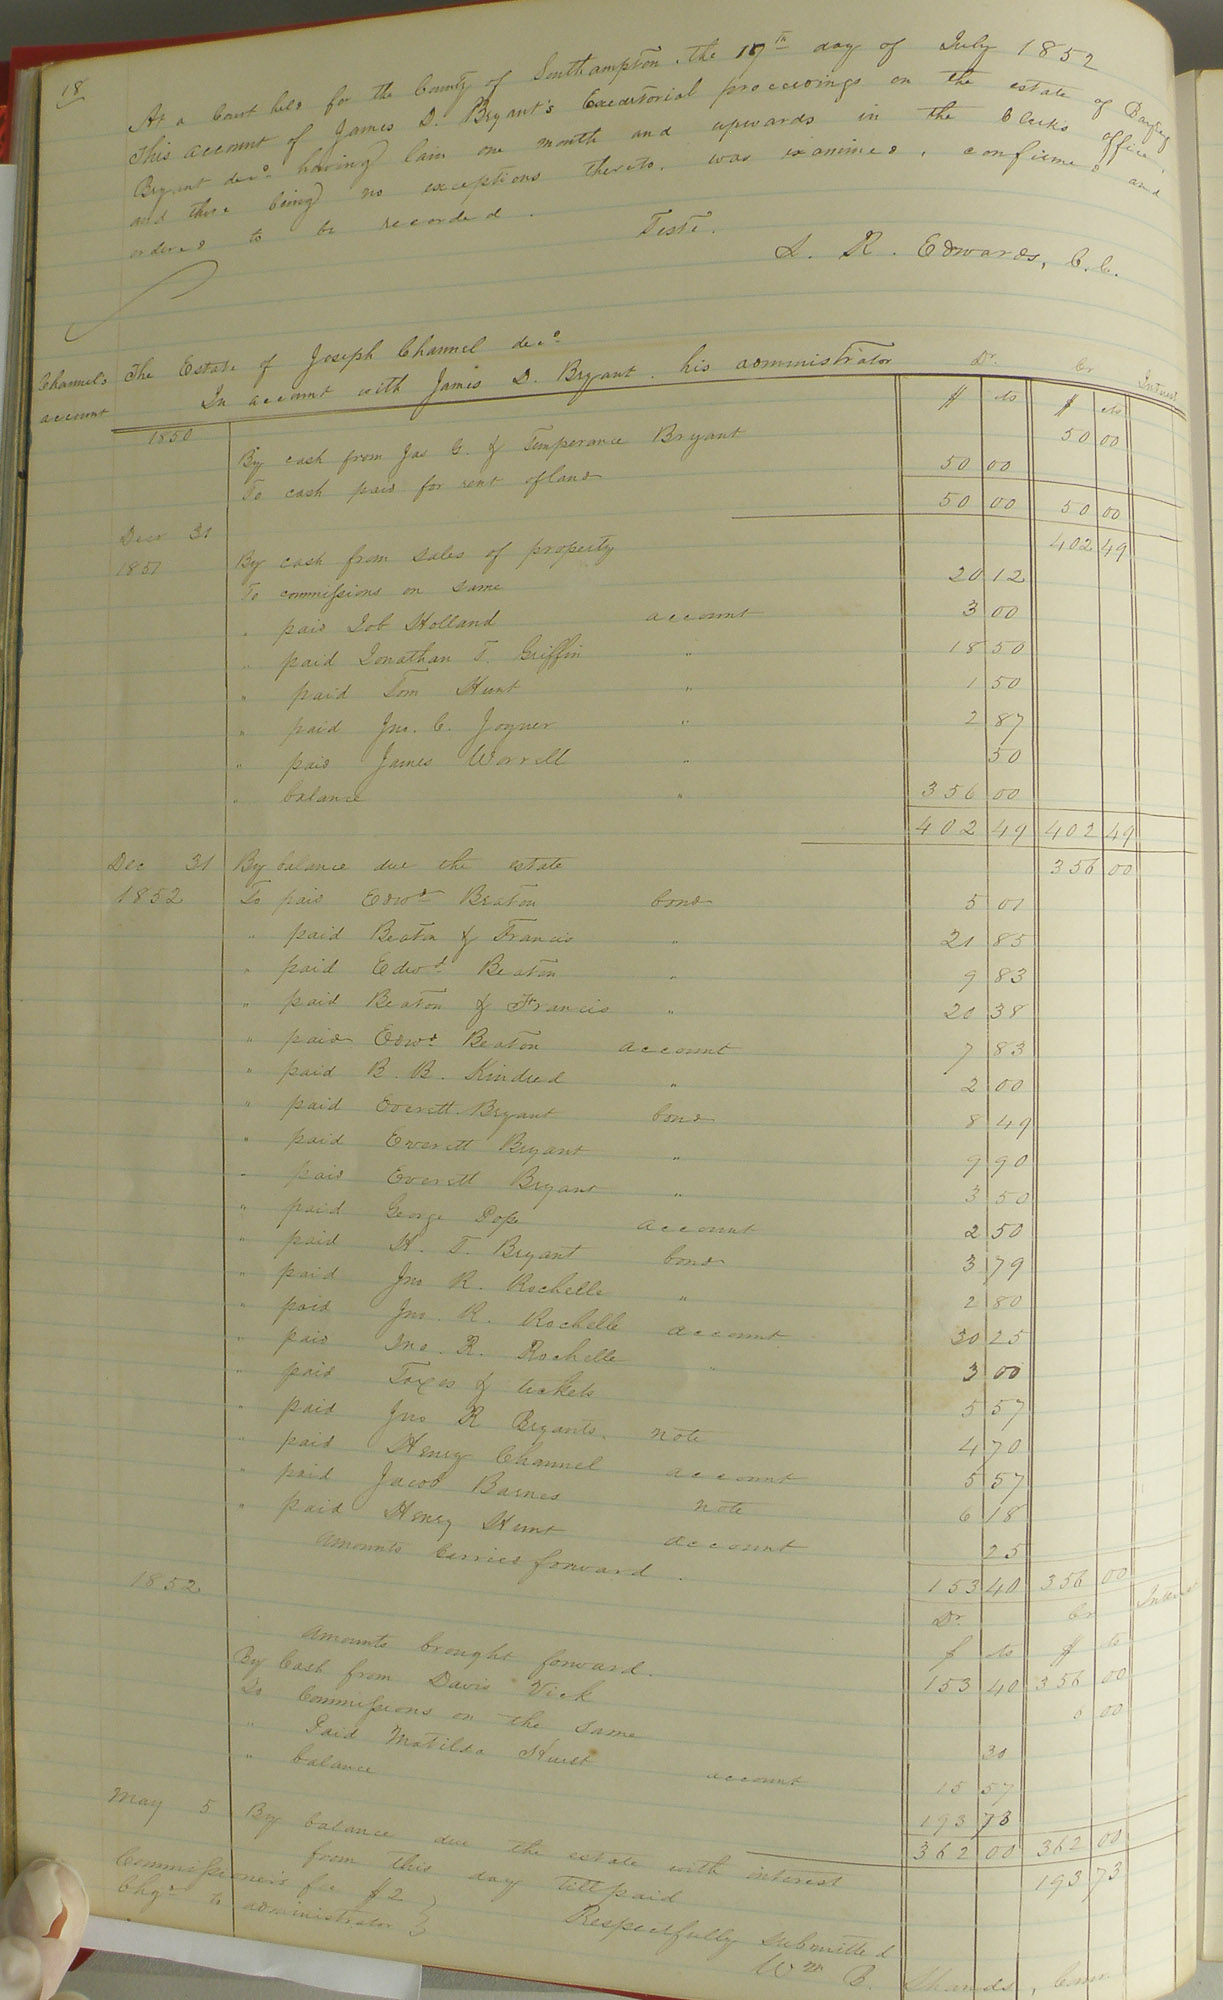 18
At a Court held for the County of Southampton, the 19th day of July 1852
This account of James D. Bryant's Executorial proceedings on the estate of
Bryant decd. having lain one month and upwards in the Clerks office,
and there being no exceptions thereto, was examined, confirmed and
ordered to be recorded.
Teste.
L. R. Edwards, C. C.
Channel's account
The Estate of Joseph Channel decd.
In account with James D. Bryant his administrator Dr. Cr Interest
$ cts $ cts
1850 By cash from Jas C. & Temperance Bryant 50 00
To cash paid for rent of land 50 00
50 00 50 00
Dec 31
1851 By cash from sales of property 402 49
To commissions on same 20 12
" paid Job Holland account 3 00
" paid Jonathan T. Griffin " 18 50
" paid Tom Hunt " 1 50
" paid Jno. C. Joyner " 2 87
" paid James Worrell " 50
" balance " 356 00
402 49 402 49
Dec 31 By balance due the estate 356 00
1852 To paid Edwd Beaton bond 5 01
" paid Beaton & Francis " 21 85
" paid Edwd Beaton " 9 83
" paid Beaton & Francis " 20 38
" paid Edwd Beaton account 7 83
" paid B. B. Kindred " 2 00
" paid Everett Bryant bond 8 49
" paid Everett Bryant " 9 90
" paid Everett Bryant " 3 50
" paid George Pope account 2 50
" paid H. T. Bryant bond 3 79
" paid Jno R. Rochelle " 2 80
" paid Jno. R. Rochelle account 30 25
" paid Jno. R. Rochelle " 3 00
" paid Taxes & tickets 5 57
" paid Jno R Bryants note 4 70
" paid Henry Channel account 5 57
" paid Jacob Barnes note 6 18
" paid Henry Hunt account 25
amounts Carried forward. 153 40 356 00
1852 Dr. Cr Interest
$ cts $ cts
amounts brought forward. 153 40 356 00
By Cash from Davis Vick 6 00
To Commissions on the same 30
" Paid Matilda Hurst account 15 57
" balance 193 73
362 00 362 00
May 5 By balance due the estate with interest 193 73
from this day till paid
Commissioner's fee $2
Chgd to administrator
Respectfully submitted
Wm B. Shands, Com.